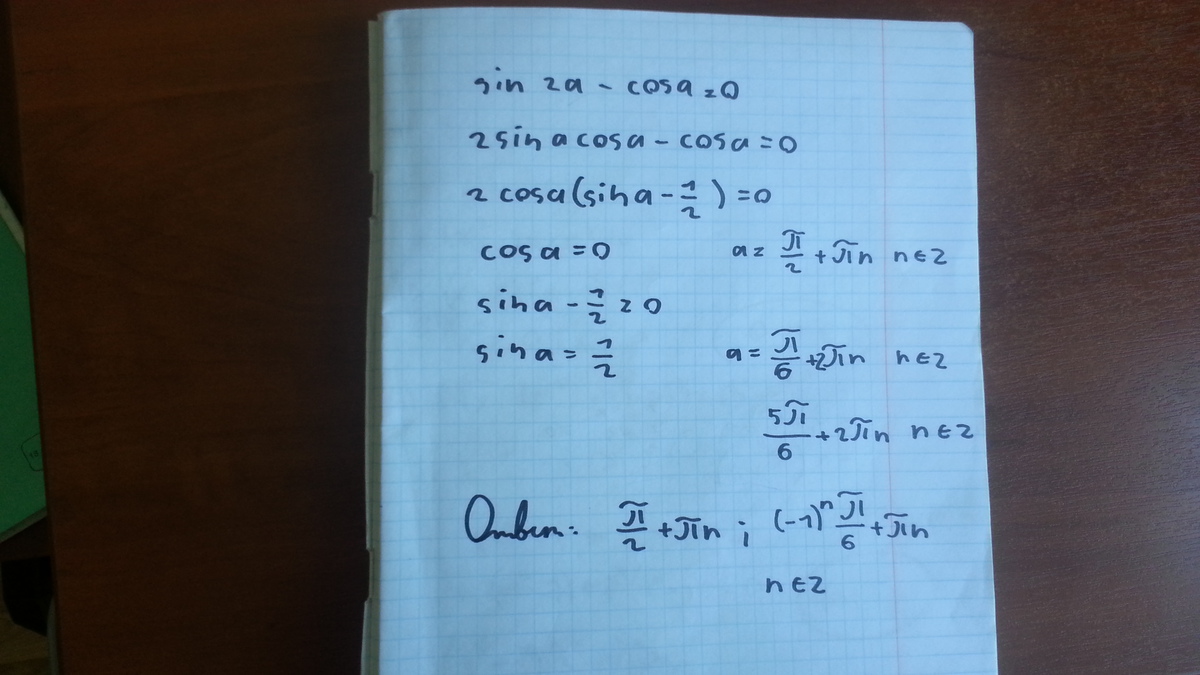 sin 2a - cosa = 0
2 sin a cosa - cosa = 0
2 cosa (sin a - 1/2) = 0
cos a = 0 a = π/2 + πn n ∈ Z
sin a - 1/2 = 0
sin a = 1/2 a = π/6 + 2πn n ∈ Z
5π/6 + 2πn n ∈ Z
Ответ: π/2 + πn ; (-1)ⁿ π/6 + πn
n ∈ Z